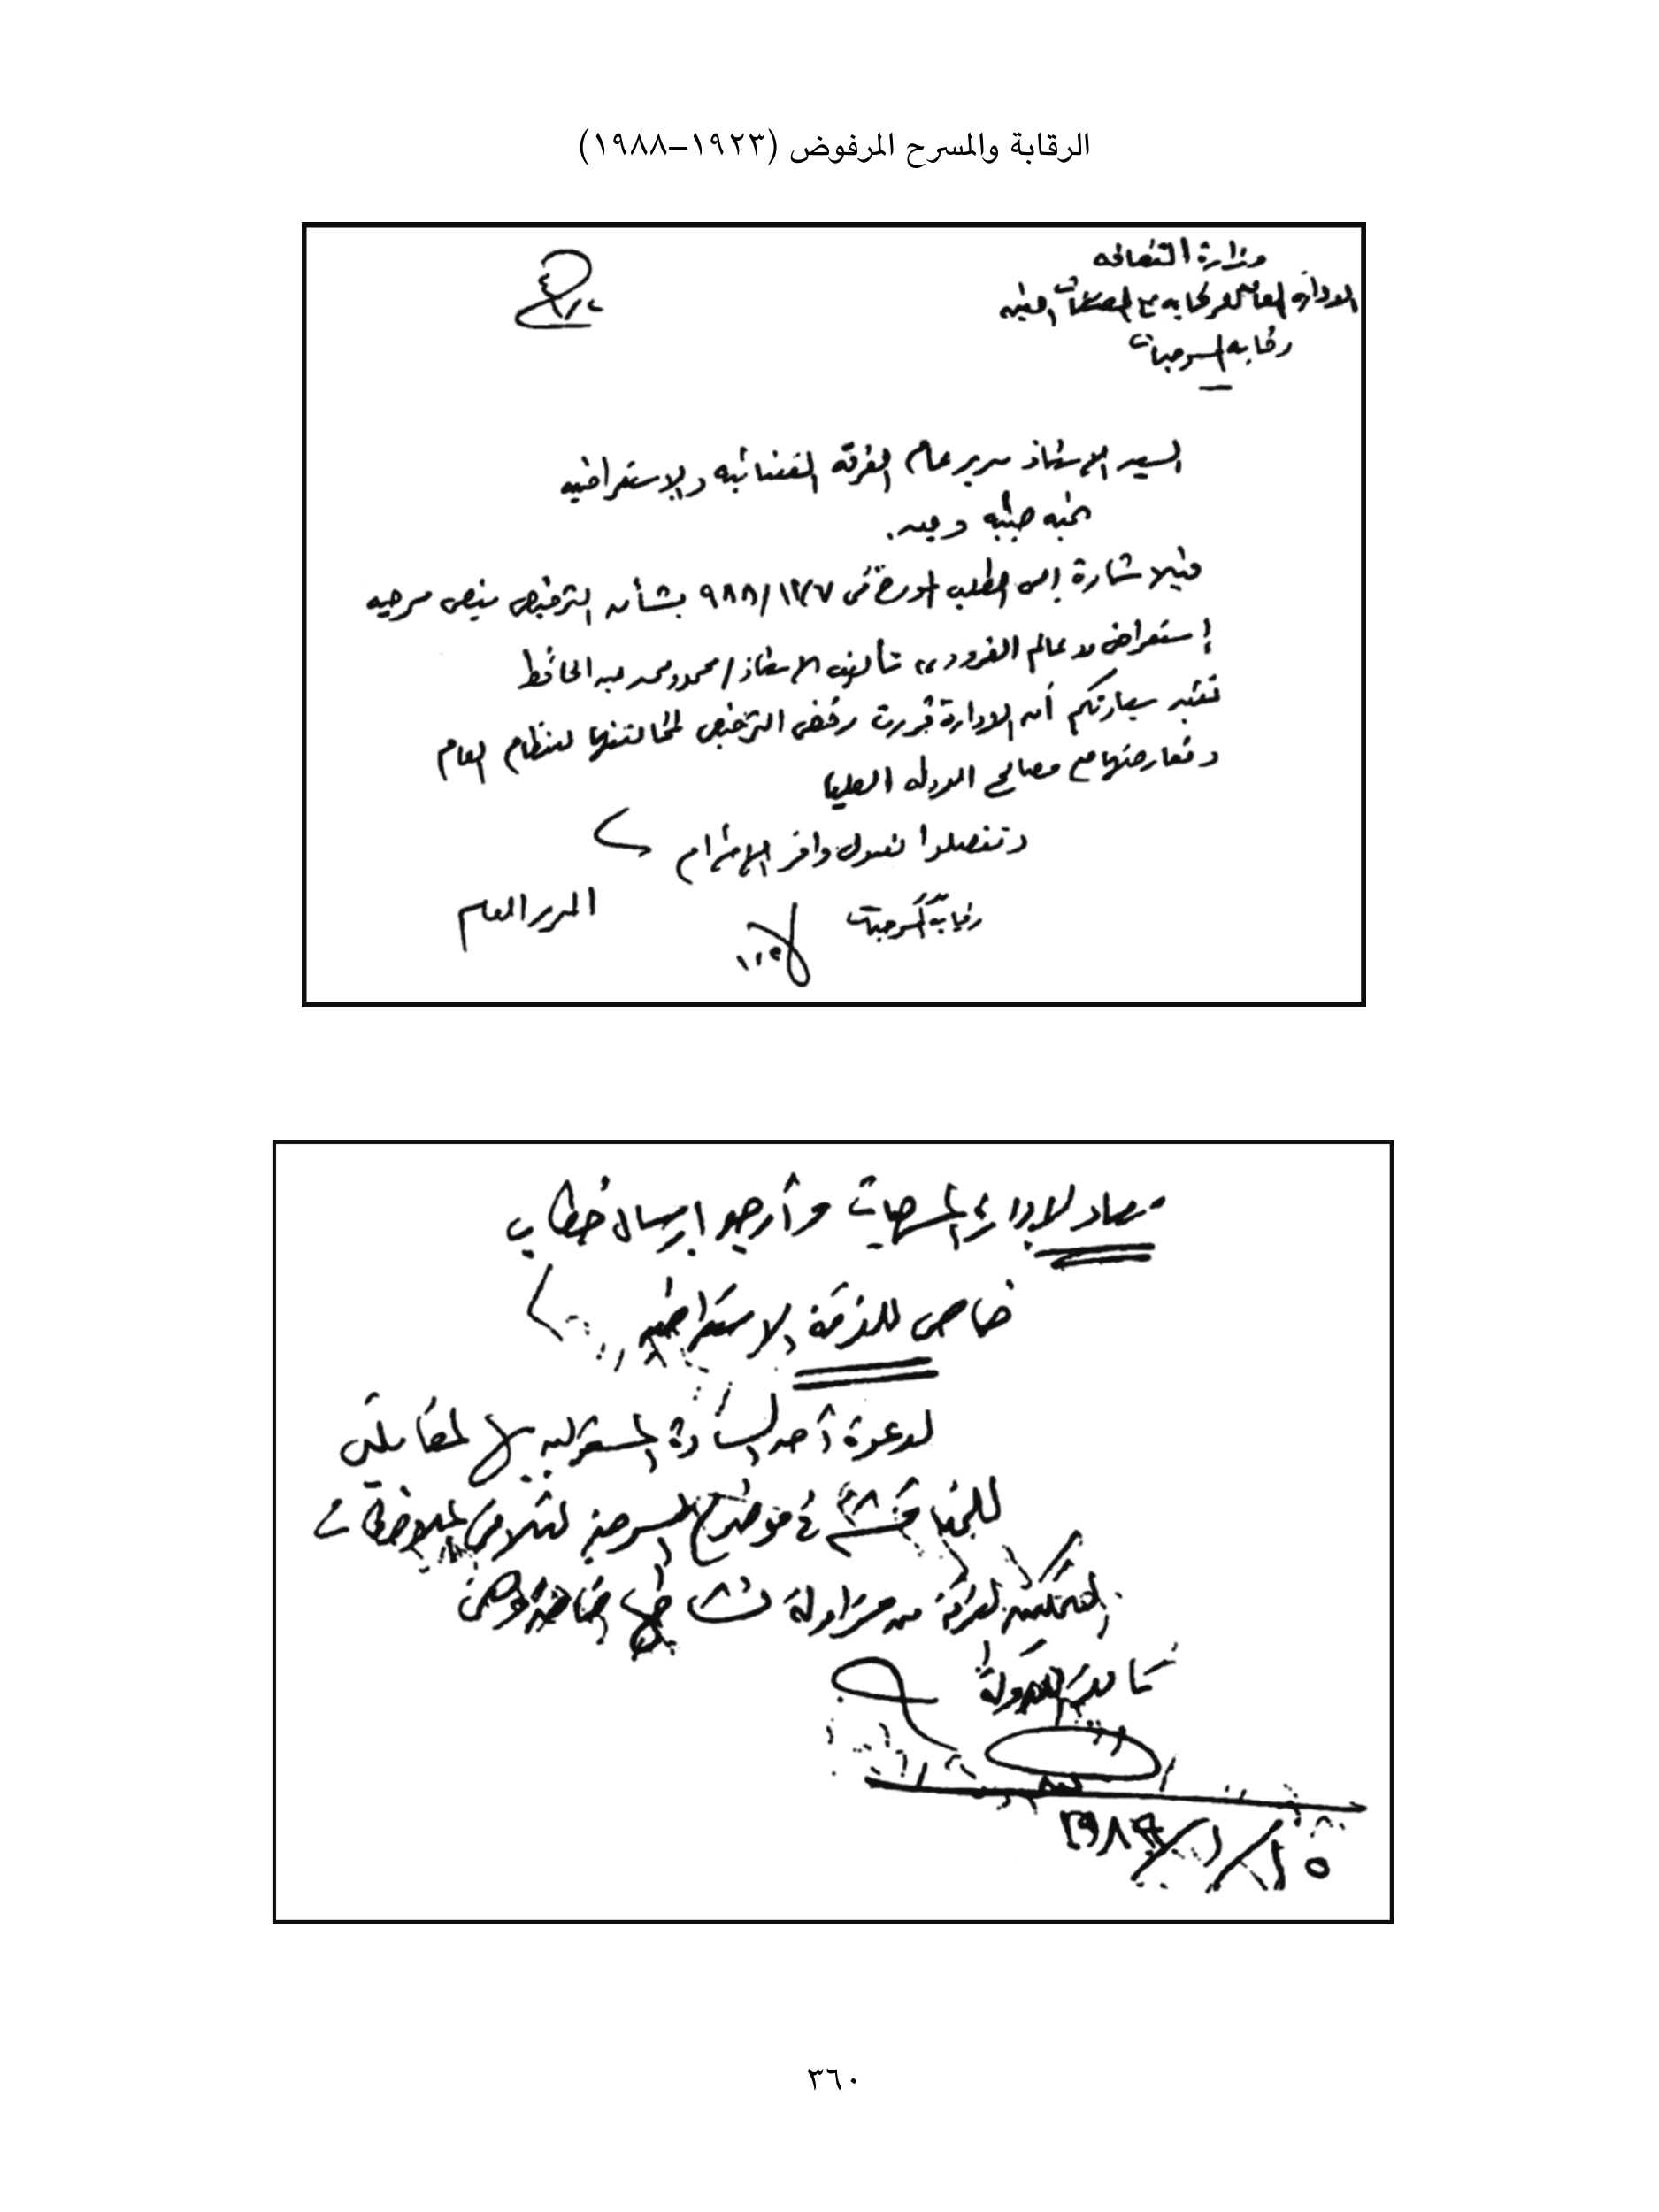 الرقابة والمسرح المرفوض (١٩٢٣–١٩٨٨)
وزارة الثقافه
الاداره العامه للرقابه على المصنفات الفنيه
رقابه المسرحيات
السيد الاستاذ مدير عام الفرقه الغنائيه والاستعراضيه
تحيه طيبه وبعد.
فبالاشارة إلى الطلب المؤرخ في ١٢/٧/ ٩٨٨ بشأن الترخيص بنص مسرحيه
إستعراض عالم القرود تأليف الاستاذ/ محمود محمد عبد الحافظ
سيادتكم أن الادارة قررت رفض الترخيص لمخالفتها للنظام العام
وتعارضها مع مصالح الدوله العليا
وتفضلوا بقبول وافر الاحترام
رقابة المسرحيات
المدير العام
المسرحيات وأرجو ارسال خطاب
خاص للفرقة الاستعراضيه
لدعوة أحد السادة المسئولين لمقابلتى
للمناقشة في موضوع المسرحية
الفرقة من مزاولة
١٩٨٩/١/١٥
٣٦٠